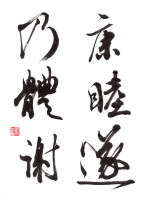 康睦遂
乃體謝